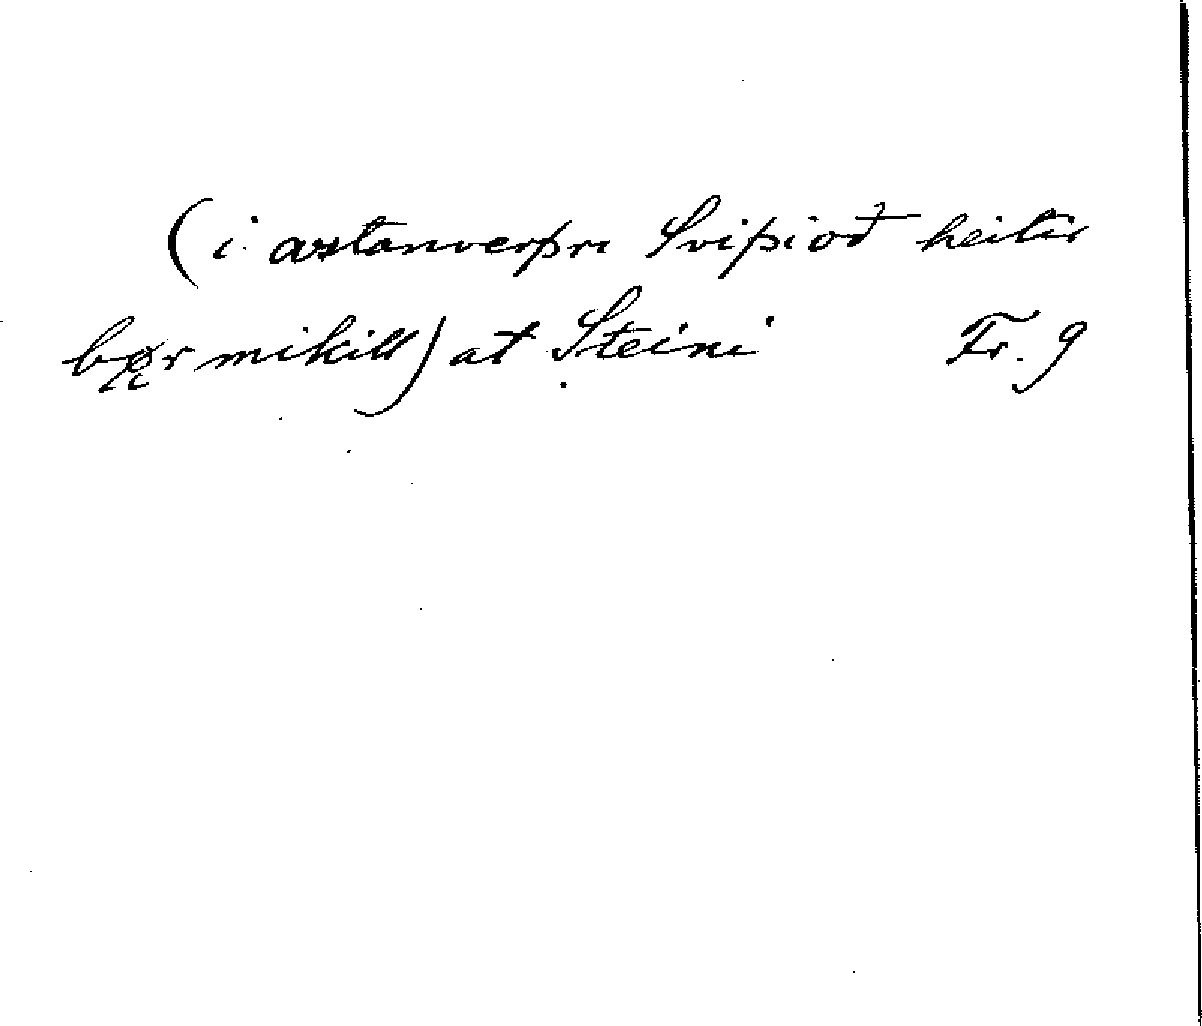 (i austanverþri Sviþioð heitir
bǿr mikill) at Steini Fr. 9